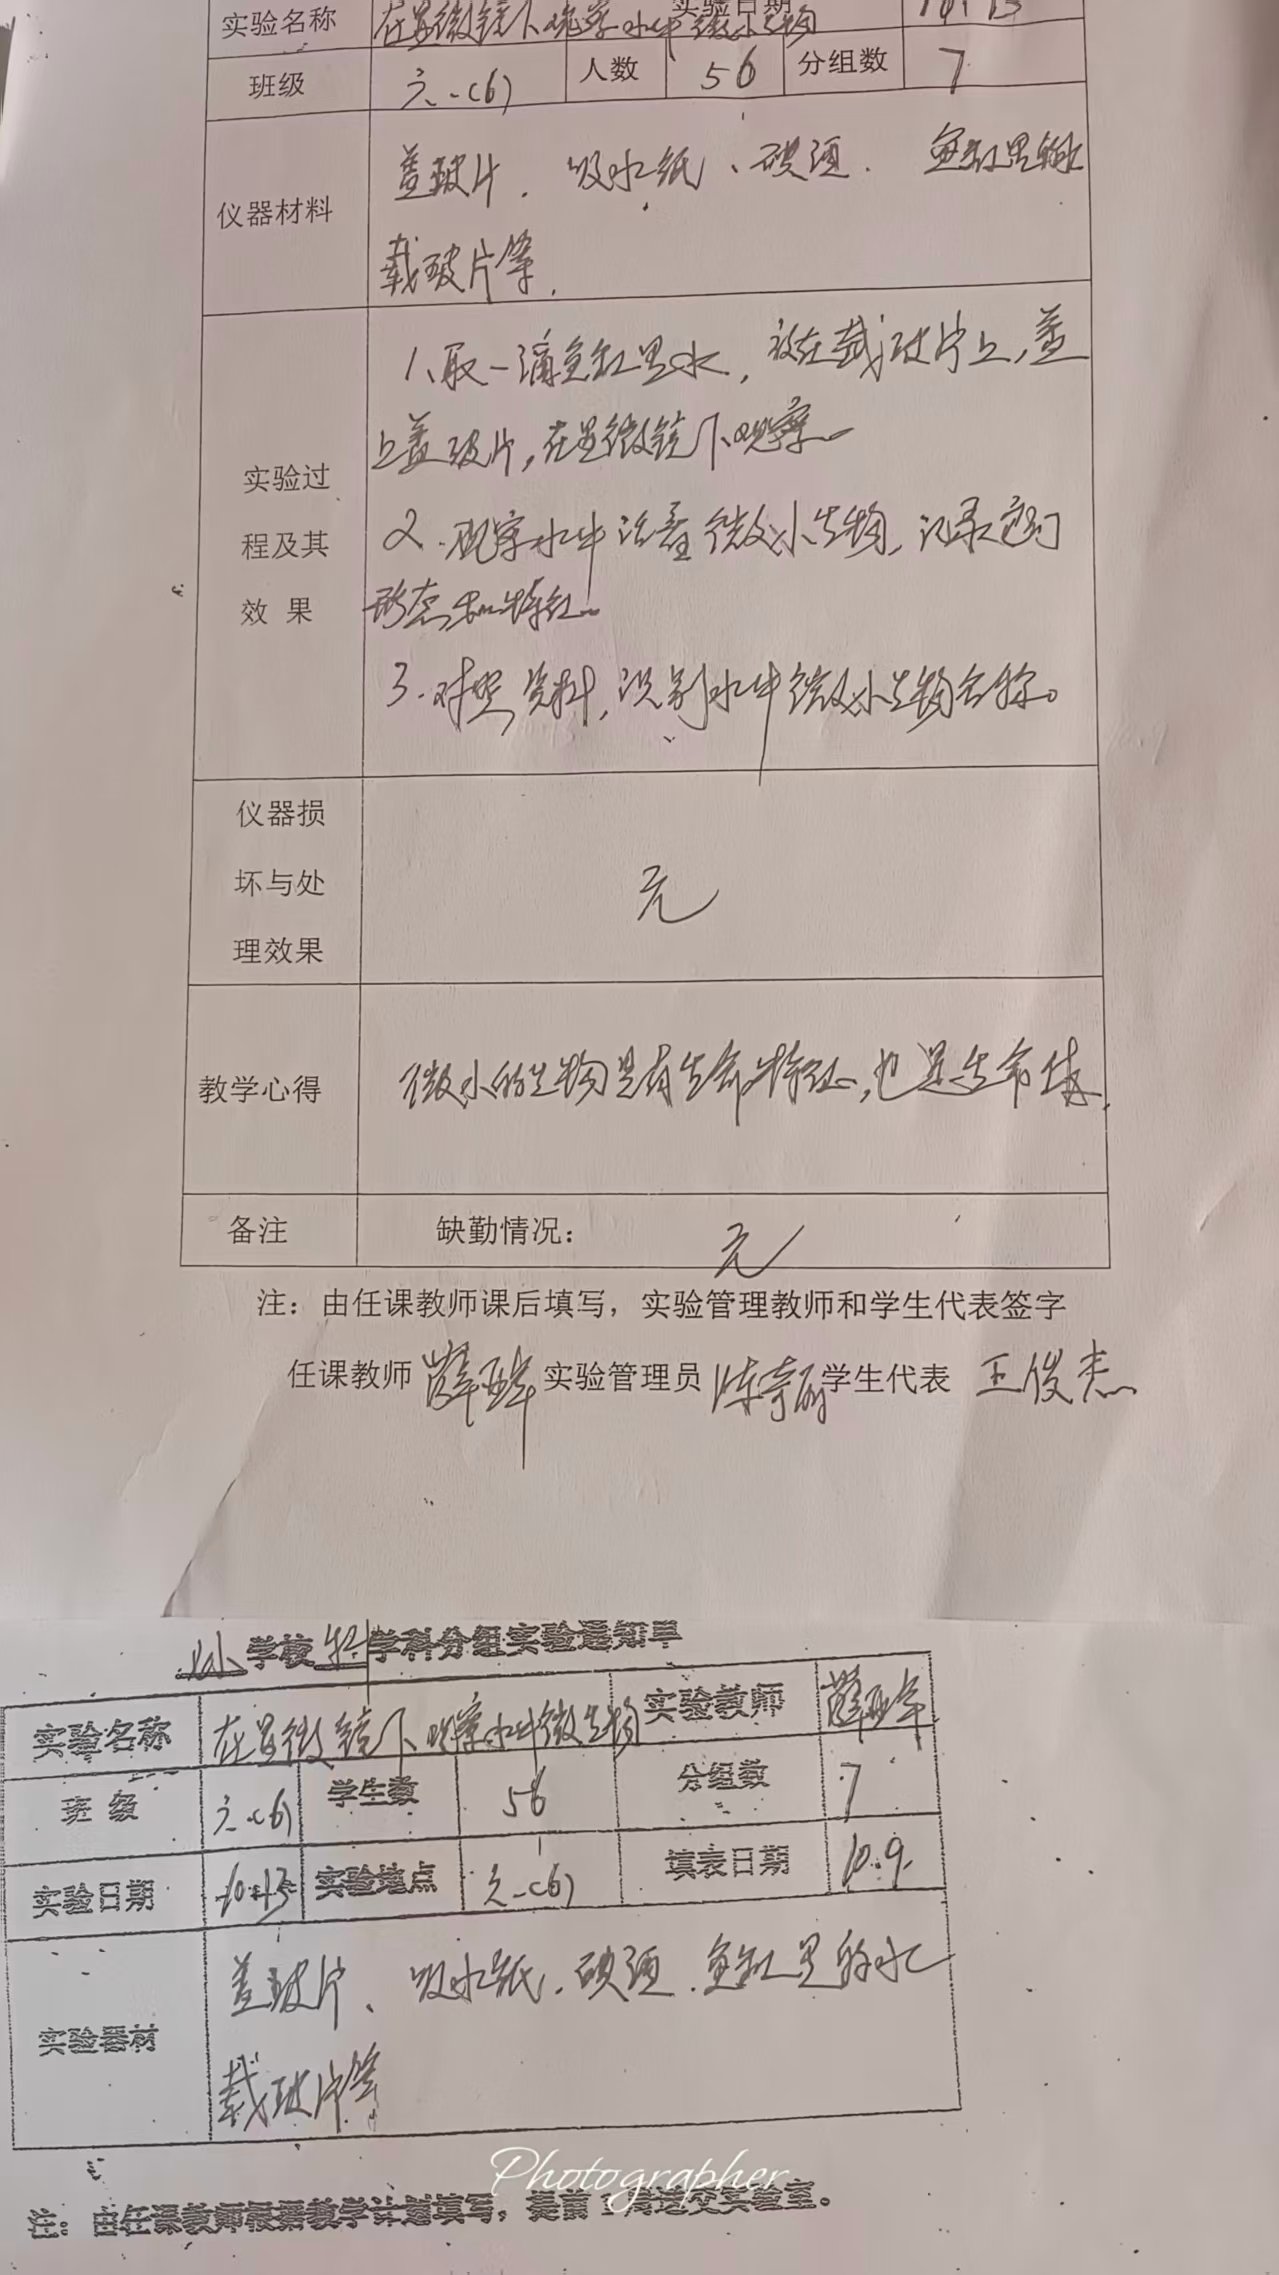 实验名称 在显微镜下观察水中微小生物 实验日期 10.13
班级 六.(6) 人数 56 分组数 7
仪器材料
盖玻片. 吸水纸、碘酒. 鱼缸里的水
载玻片等.
实验过程及其效果
1、取一滴鱼缸里水，放在载玻片上，盖
上盖玻片，在显微镜下观察。
2.观察水中活着微小生物，记录它们
形态和特征。
3.对照资料，识别水中微小生物名称。
仪器损坏与处理效果
无
教学心得
微小的生物具有生命特征，也是生命体.
备注 缺勤情况： 无
注：由任课教师课后填写，实验管理教师和学生代表签字
任课教师 实验管理员 陈奇丽 学生代表 王俊杰
学校 科 学科分组实验通知单
实验名称 在显微镜下观察水中微生物 实验教师
班 级 六.(6) 学生数 56 分组数 7
实验日期 10.13 实验地点 六.(6) 填表日期 10.9.
实验器材
盖玻片、吸水纸.碘酒.鱼缸里的水
载玻片等
Photographer
注：由任课教师根据教学计划填写，提前1周送交实验室。